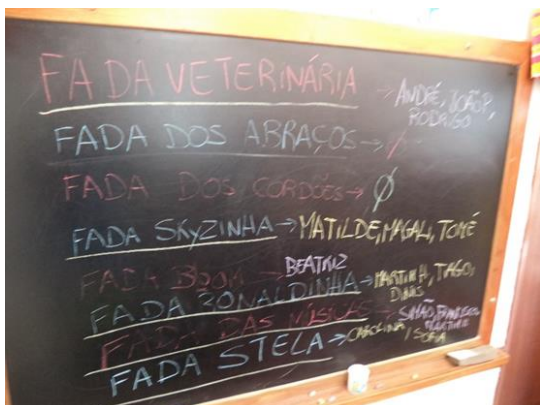 FADA VETERINÁRIA → ANDRÉ, JOÃO P,
RODRIGO
FADA DOS ABRAÇOS →
FADA DOS CORDÕES → Ø
FADA SKYZINHA → MATILDE, MAGALI, TOMÉ
FADA BOOM → BEATRIZ
FADA RONALDINHA → MARTIM H, TIAGO,
DINIS
FADA DAS MÚSICAS → SIMÃO, FRANCISCO
FADA STELA → CAROLINA / SOFIA